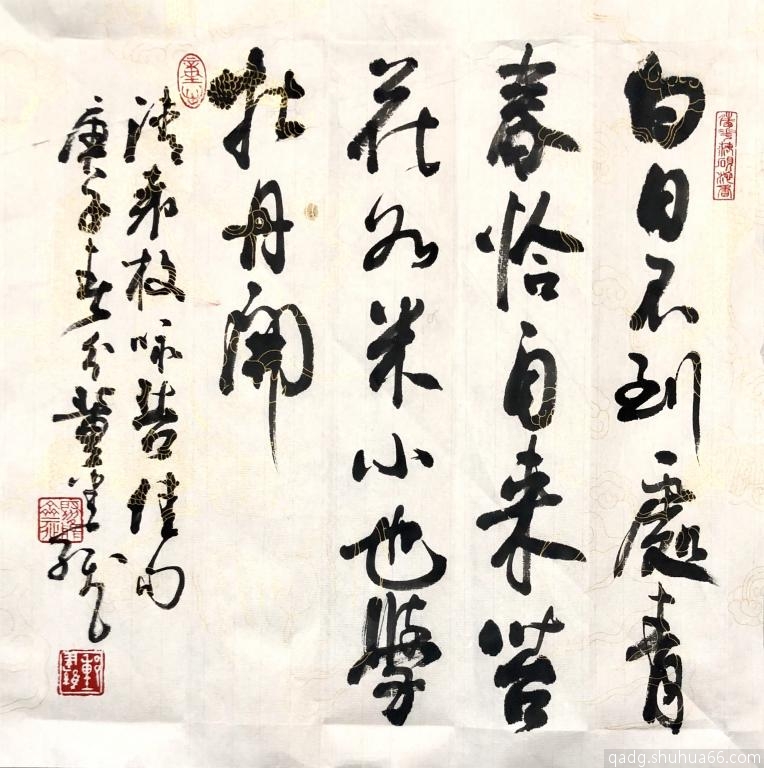 白日不到處青
春恰自来苔
花如米小也學
牡丹開
清袁枚咏苔佳句
庚子春分
qadg.shuhua66.com